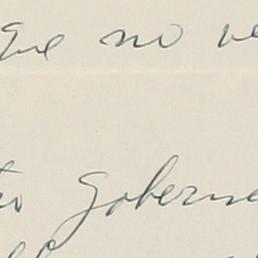 que no ve
tro goberne